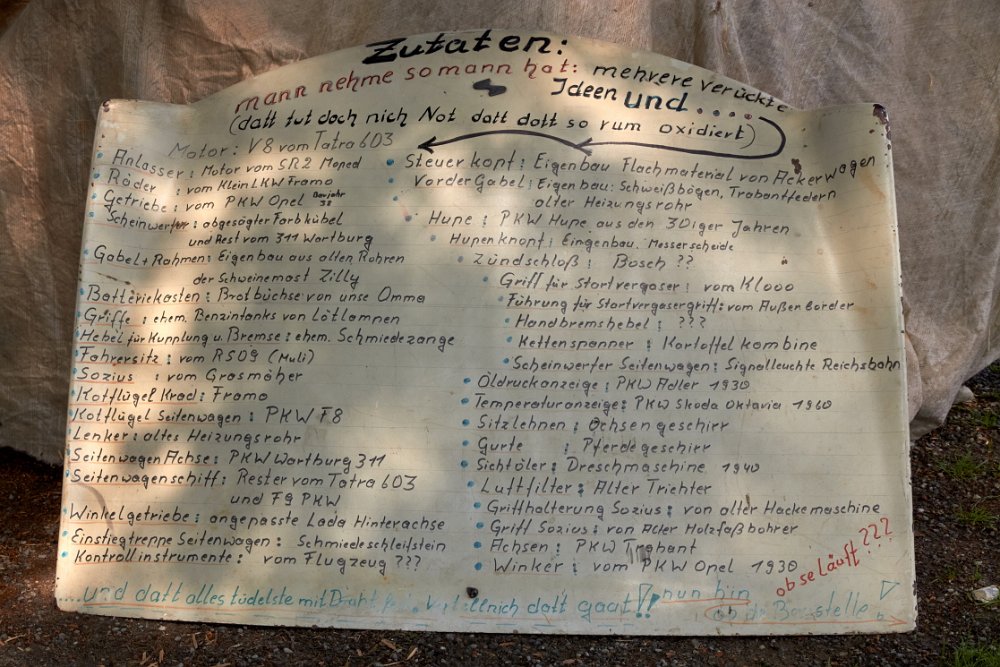 Zutaten:
mann nehme somann hat: mehrere verückte
Ideen und ....
(datt tut doch nich Not datt dott so rum oxidiert)
Motor: V8 vom Tatra 603
Anlasser: Motor vom SR2 Moped
Räder : vom Klein LKW Framo
Getriebe: vom PKW Opel Baujahr 38
Scheinwerfer: abgesägter Farbkübel
und Rest vom 311 Wartburg
Gabel+Rahmen: Eigenbau aus alten Rohren
der Schweinemast Zilly
Batteriekasten: Brotbüchse von unse Omma
Griffe: ehem. Benzintanks von Lötlampen
Hebel für Kupplung u. Bremse: ehem. Schmiedezange
Fahrersitz: vom RS09 (Muli)
Sozius : vom Grasmäher
Kotflügel Krad: Framo
Kotflügel Seitenwagen: PKW F8
Lenker: altes Heizungsrohr
Seitenwagen Achse: PKW Wartburg 311
Seitenwagenschiff: Rester vom Tatra 603
und F9 PKW
Winkelgetriebe: angepasste Lada Hinterachse
Einstiegtreppe Seitenwagen: Schmiedeschleifstein
Kontrollinstrumente: vom Flugzeug ???
Steuerkopf: Eigenbau Flachmaterial von Ackerwagen
Vorder Gabel: Eigenbau: Schweißbögen, Trabantfedern
alter Heizungsrohr
Hupe : PKW Hupe aus den 30iger Jahren
Hupenknopf: Eingenbau. Messerscheide
Zündschloß: Bosch ??
Griff für Startvergaser: vom Klooo
Führung für Startvergasergriff: vom Außenborder
Handbremshebel : ???
Kettenspanner : Kartoffel kombine
Scheinwerfer Seitenwagen: Signalleuchte Reichsbahn
Öldruckanzeige: PKW Adler 1930
Temperaturanzeige: PKW Skoda Oktavia 1960
Sitzlehnen: Ochsengeschirr
Gurte : Pferdegeschirr
Sichtöler: Dreschmaschine 1940
Luftfilter: Alter Trichter
Griffhalterung Sozius: von alter Hackemaschine
Griff Sozius: von Alter Holzfaßbohrer
Achsen: PKW Trabant
Winker: vom PKW Opel 1930
ob se läuft ???
....und datt alles tüdelste mit Draht datt gaat!! nun hin